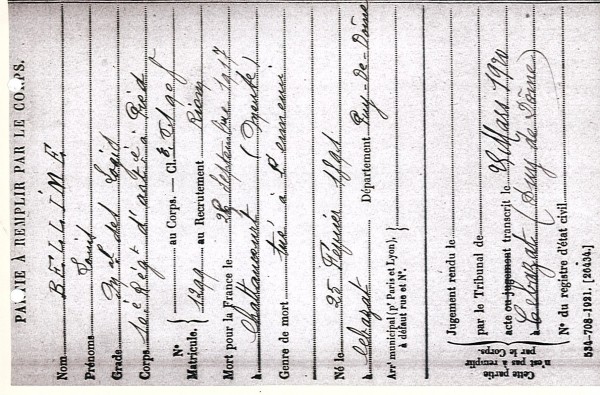 PARTIE À REMPLIR PAR LE CORPS.
Nom BELLIME
Prénoms Louis
Grade Mal des Logis
Corps 10e Régt d'artie à Pied
N° Matricule. { au Corps. — Cl.
1299 au Recrutement Riom
Mort pour la France le 28 septembre 1917
à Chattancourt (Meuse)
Genre de mort tué à l'ennemi
Né le 25 Février 1891
à Cébazat Département Puy-De-Dôme
Arr' municipal (p' Paris et Lyon), à défaut rue et N°. }
Cette partie n'est pas à remplir par le Corps.
Jugement rendu le
par le Tribunal de
acte ou jugement transcrit le 28 Mars 1920
à Cébazat (Puy de Dôme)
N° du registre d'état civil
534-708-1921. [26434.]